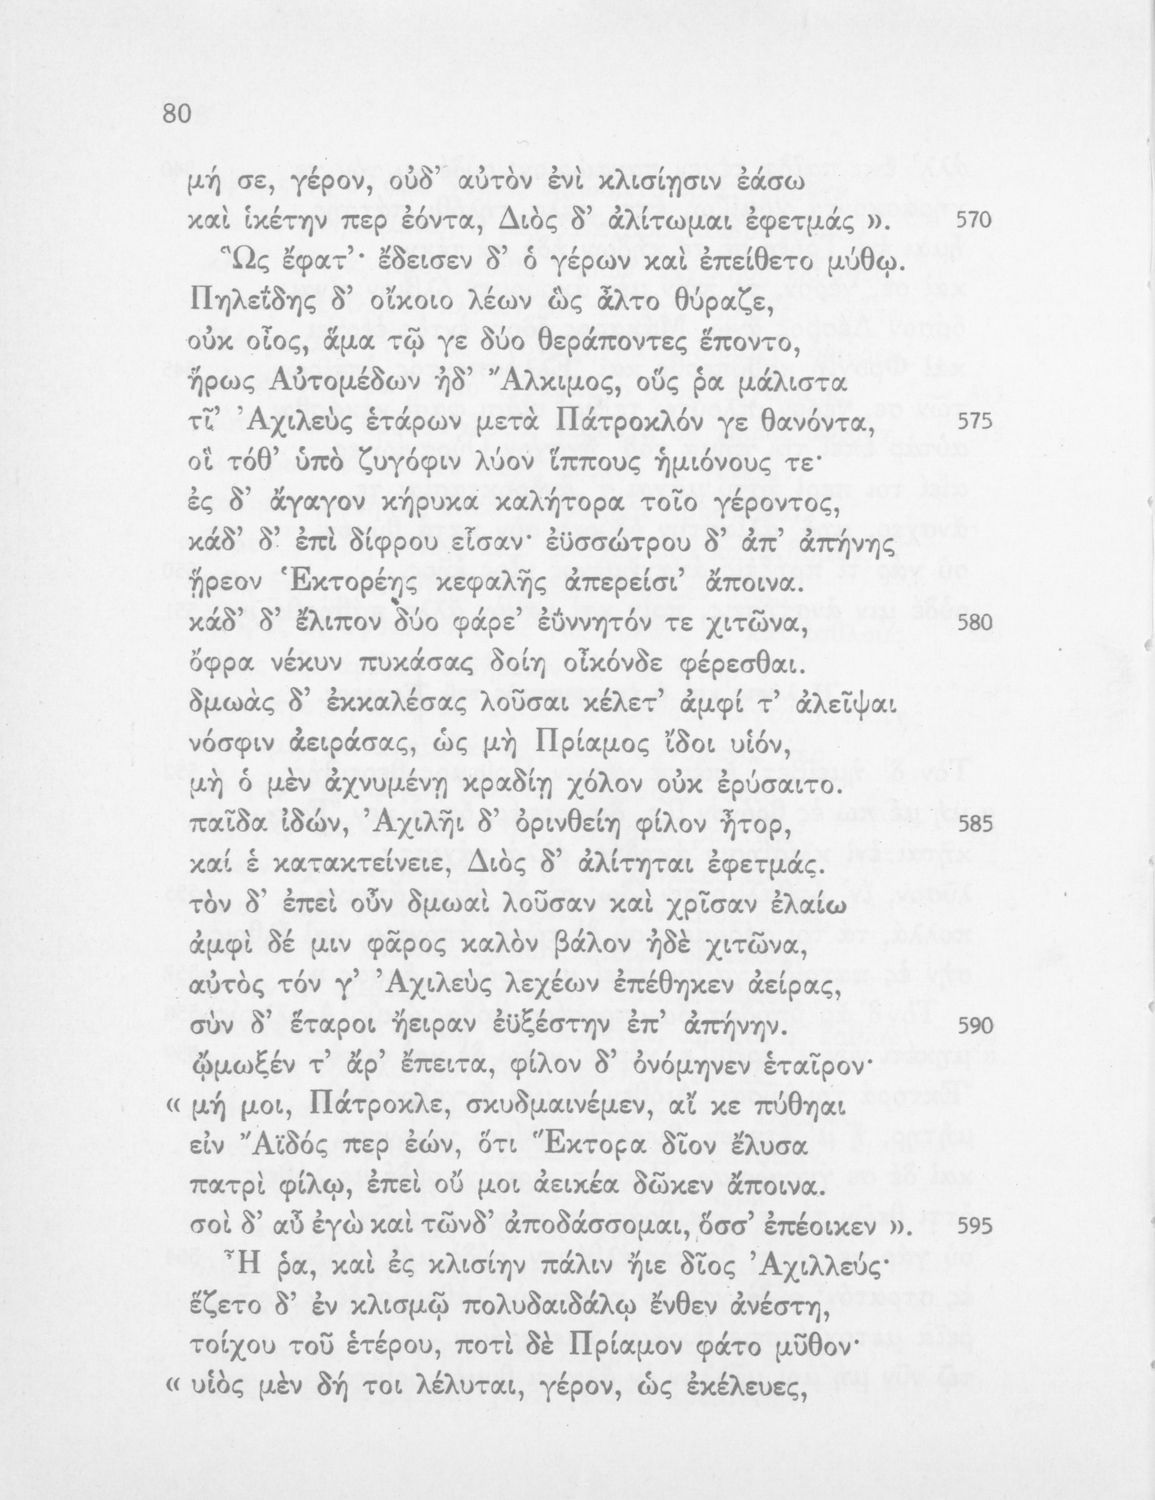 80
μή σε, γέρον, οὐδ’ αὐτὸν ἐνὶ κλισίῃσιν ἐάσω
καὶ ἱκέτην περ ἐόντα, Διὸς δ’ ἀλίτωμαι ἐφετμάς ». 570
Ὣς ἔφατ’· ἔδεισεν δ’ ὁ γέρων καὶ ἐπείθετο μύθῳ.
Πηλεΐδης δ’ οἴκοιο λέων ὣς ἆλτο θύραζε,
οὐκ οἶος, ἅμα τῷ γε δύο θεράποντες ἕποντο,
ἥρως Αὐτομέδων ἠδ’ Ἄλκιμος, οὕς ῥα μάλιστα
τῖ’ Ἀχιλεὺς ἑτάρων μετὰ Πάτροκλόν γε θανόντα, 575
οἳ τόθ’ ὑπὸ ζυγόφιν λύον ἵππους ἡμιόνους τε·
ἐς δ’ ἄγαγον κήρυκα καλήτορα τοῖο γέροντος,
κάδ’ δ’ ἐπὶ δίφρου εἷσαν· ἐϋσσώτρου δ’ ἀπ’ ἀπήνης
ᾕρεον Ἑκτορέης κεφαλῆς ἀπερείσι’ ἄποινα.
κάδ’ δ’ ἔλιπον δύο φάρε’ ἐΰννητόν τε χιτῶνα, 580
ὄφρα νέκυν πυκάσας δοίη οἶκόνδε φέρεσθαι.
δμωὰς δ’ ἐκκαλέσας λοῦσαι κέλετ’ ἀμφί τ’ ἀλεῖψαι
νόσφιν ἀειράσας, ὡς μὴ Πρίαμος ἴδοι υἱόν,
μὴ ὁ μὲν ἀχνυμένῃ κραδίῃ χόλον οὐκ ἐρύσαιτο.
παῖδα ἰδών, Ἀχιλῆι δ’ ὀρινθείη φίλον ἦτορ, 585
καί ἑ κατακτείνειε, Διὸς δ’ ἀλίτηται ἐφετμάς.
τὸν δ’ ἐπεὶ οὖν δμωαὶ λοῦσαν καὶ χρῖσαν ἐλαίω
ἀμφὶ δέ μιν φᾶρος καλὸν βάλον ἠδὲ χιτῶνα,
αὐτὸς τόν γ’ Ἀχιλεὺς λεχέων ἐπέθηκεν ἀείρας,
σὺν δ’ ἕταροι ἤειραν ἐϋξέστην ἐπ’ ἀπήνην. 590
ᾤμωξέν τ’ ἄρ’ ἔπειτα, φίλον δ’ ὀνόμηνεν ἑταῖρον·
« μή μοι, Πάτροκλε, σκυδμαινέμεν, αἴ κε πύθηαι
εἰν Ἄϊδός περ ἐών, ὅτι Ἕκτορα δῖον ἔλυσα
πατρὶ φίλῳ, ἐπεὶ οὔ μοι ἀεικέα δῶκεν ἄποινα.
σοὶ δ’ αὖ ἐγὼ καὶ τῶνδ’ ἀποδάσσομαι, ὅσσ’ ἐπέοικεν ». 595
Ἦ ῥα, καὶ ἐς κλισίην πάλιν ἤιε δῖος Ἀχιλλεύς·
ἕζετο δ’ ἐν κλισμῷ πολυδαιδάλῳ ἔνθεν ἀνέστη,
τοίχου τοῦ ἑτέρου, ποτὶ δὲ Πρίαμον φάτο μῦθον·
« υἱὸς μὲν δή τοι λέλυται, γέρον, ὡς ἐκέλευες,